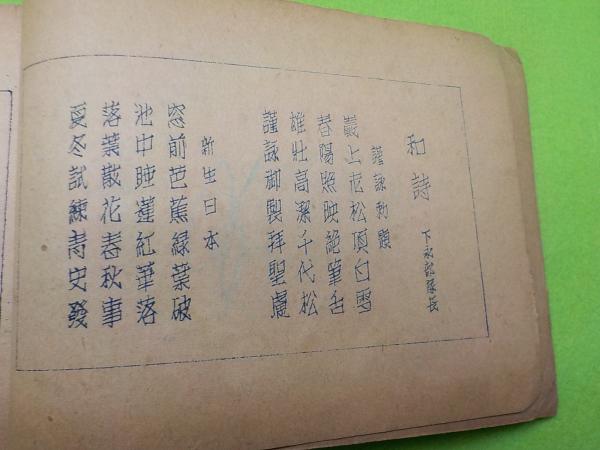 和詩 下永部隊長
謹詠勅題
巌上老松頂白雪
春陽照映絶筆舌
雄壮高潔千代松
謹詠御製拝聖慮
新生日本
窓前芭蕉緑葉破
池中睡蓮紅華落
落葉散花春秋事
夏冬試練青史發